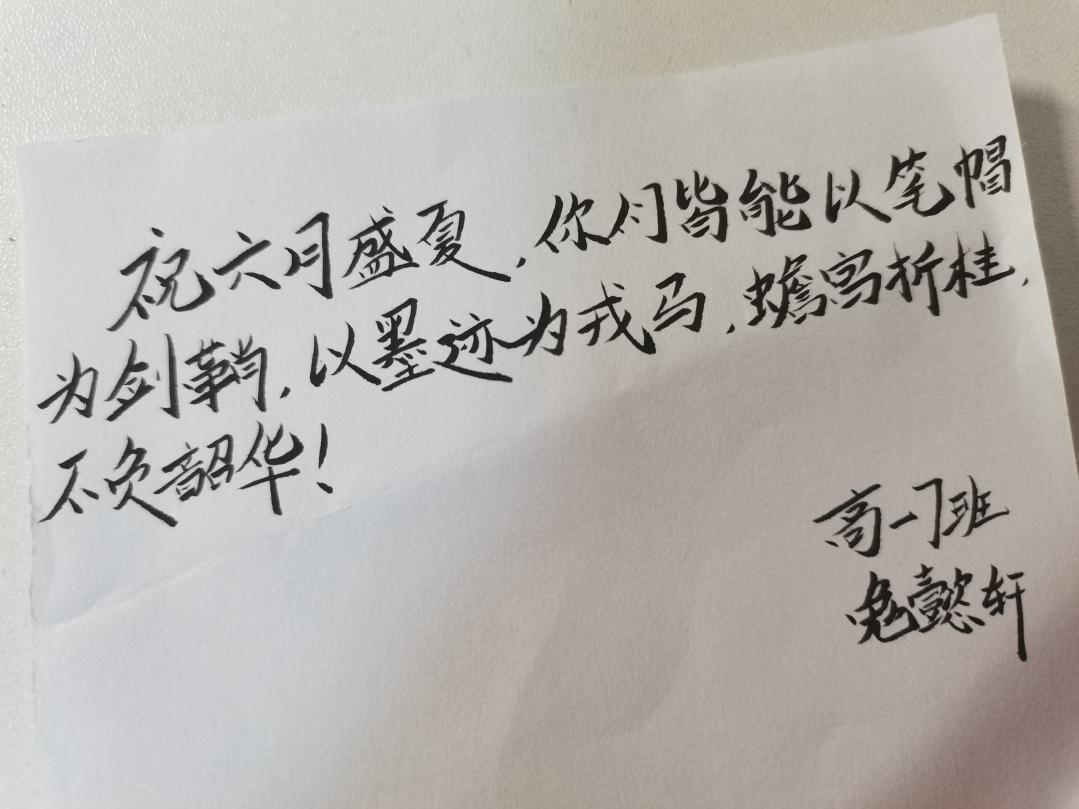 祝六月盛夏,你们皆能以笔帽
为剑鞘,以墨迹为戎马,蟾宫折桂,
不负韶华!
高一7班
懿轩